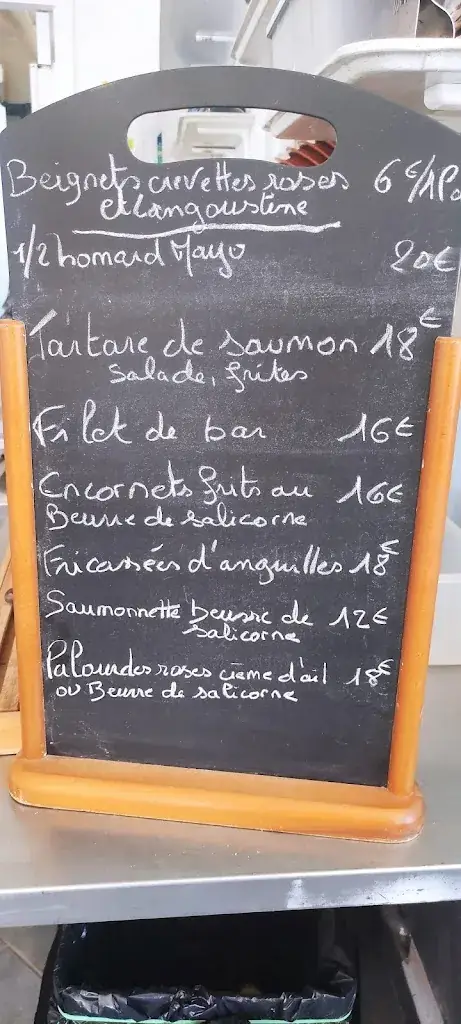 Beignets crevettes roses 6€/1P
et langoustine
1/2 homard Mayo 20€
Tartare de saumon 18€
Salade, frites
Filet de bar 16€
Encornets frits au 16€
Beurre de salicorne
Fricassées d'anguilles 18€
Saumonnette beurre de 12€
salicorne
Palourdes roses crème d'ail 18€
ou Beurre de salicorne